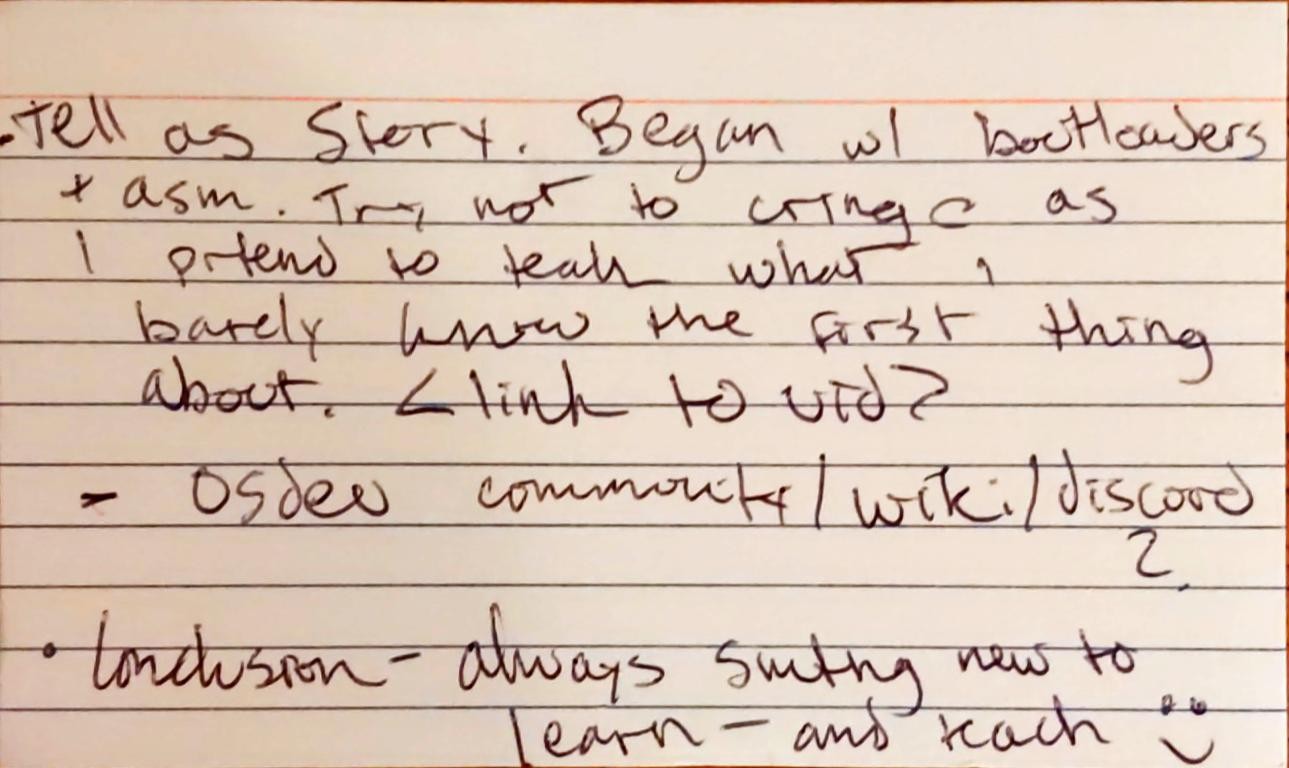 • Tell as Story. Began w/ bootloaders
+ asm. Try not to cringe as
I pretend to teach what I
barely know the first thing
about. < link to vid?
- OSdev community/wiki/discord
?
• Conclusion - always smthng new to
learn - and teach :)